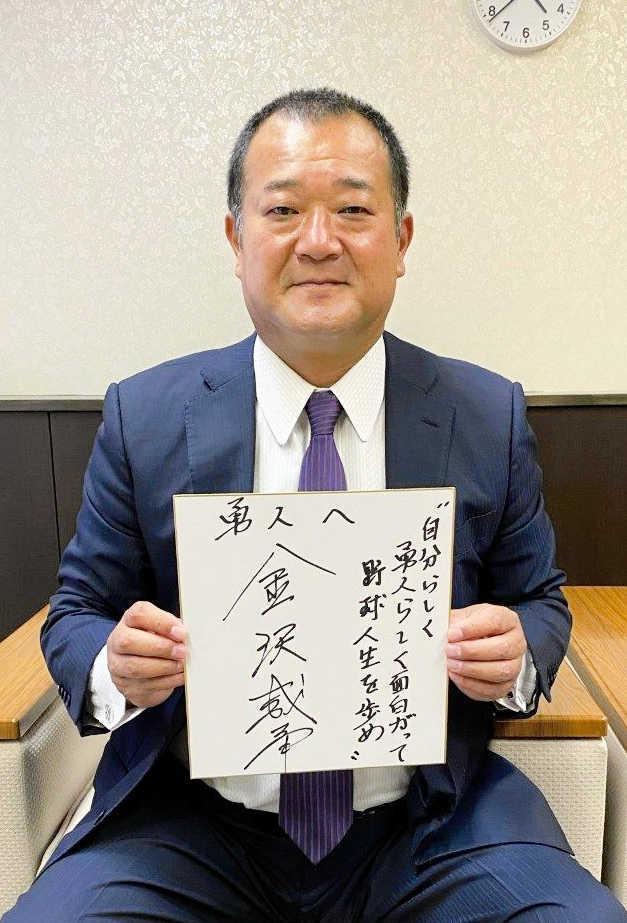 4
5
6
7
8
勇人へ
〝自分らしく
勇人らしく面白がって
野球人生を歩め〟
金沢成奉